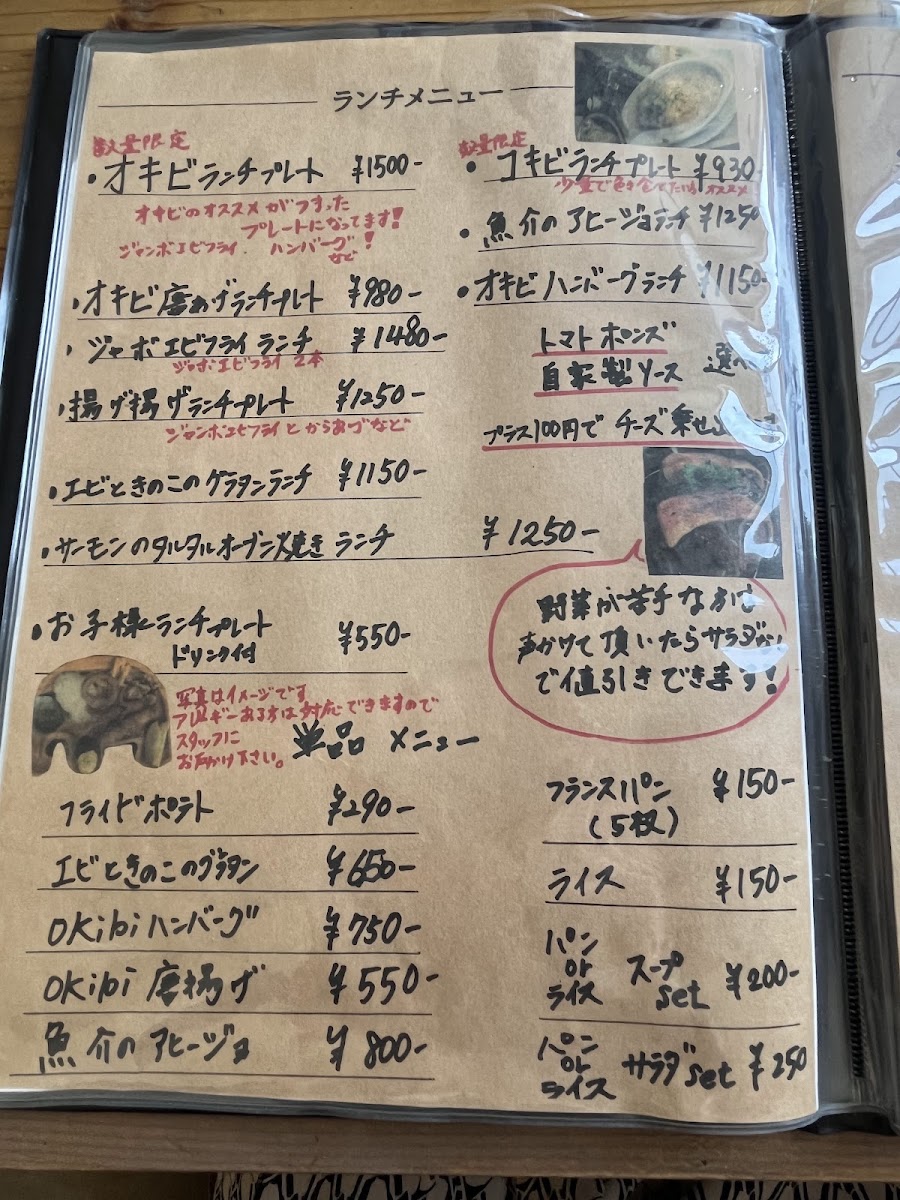 ランチメニュー
数量限定
・オキビランチプレート ¥1500-
オキビのオススメがつまった
プレートになってます!
ジャンボエビフライ ハンバーグ など!
・オキビ唐あげランチプレート ¥980-
・ジャンボエビフライ ランチ ¥1480-
ジャンボエビフライ 2本
・揚げ揚げランチプレート ¥1250-
ジャンボエビフライとからあげなど
・エビときのこのグラタンランチ ¥1150-
・サーモンのタルタルオーブン焼き ランチ ¥1250-
・お子様ランチプレート ¥550-
ドリンク付
写真はイメージです
アレルギーある方は対応できますので
スタッフに
お声かけ下さい。
数量限定
・コキビランチプレート ¥930
少量で色々食べたい方オススメ
・魚介のアヒージョランチ ¥1250
・オキビハンバーグランチ ¥1150-
トマトポンズ
自家製ソース 選べ
プラス100円で チーズ乗せ
野菜が苦手な方は
声かけて頂いたらサラダ
で値引きできます!
単品 メニュー
フライドポテト ¥290-
エビときのこのグラタン ¥650-
OKibiハンバーグ ¥750-
OKibi 唐揚げ ¥550-
魚介のアヒージョ ¥800-
フランスパン ¥150-
(5枚)
ライス ¥150-
パン or ライス スープ set ¥200-
パン or ライス サラダ set ¥250